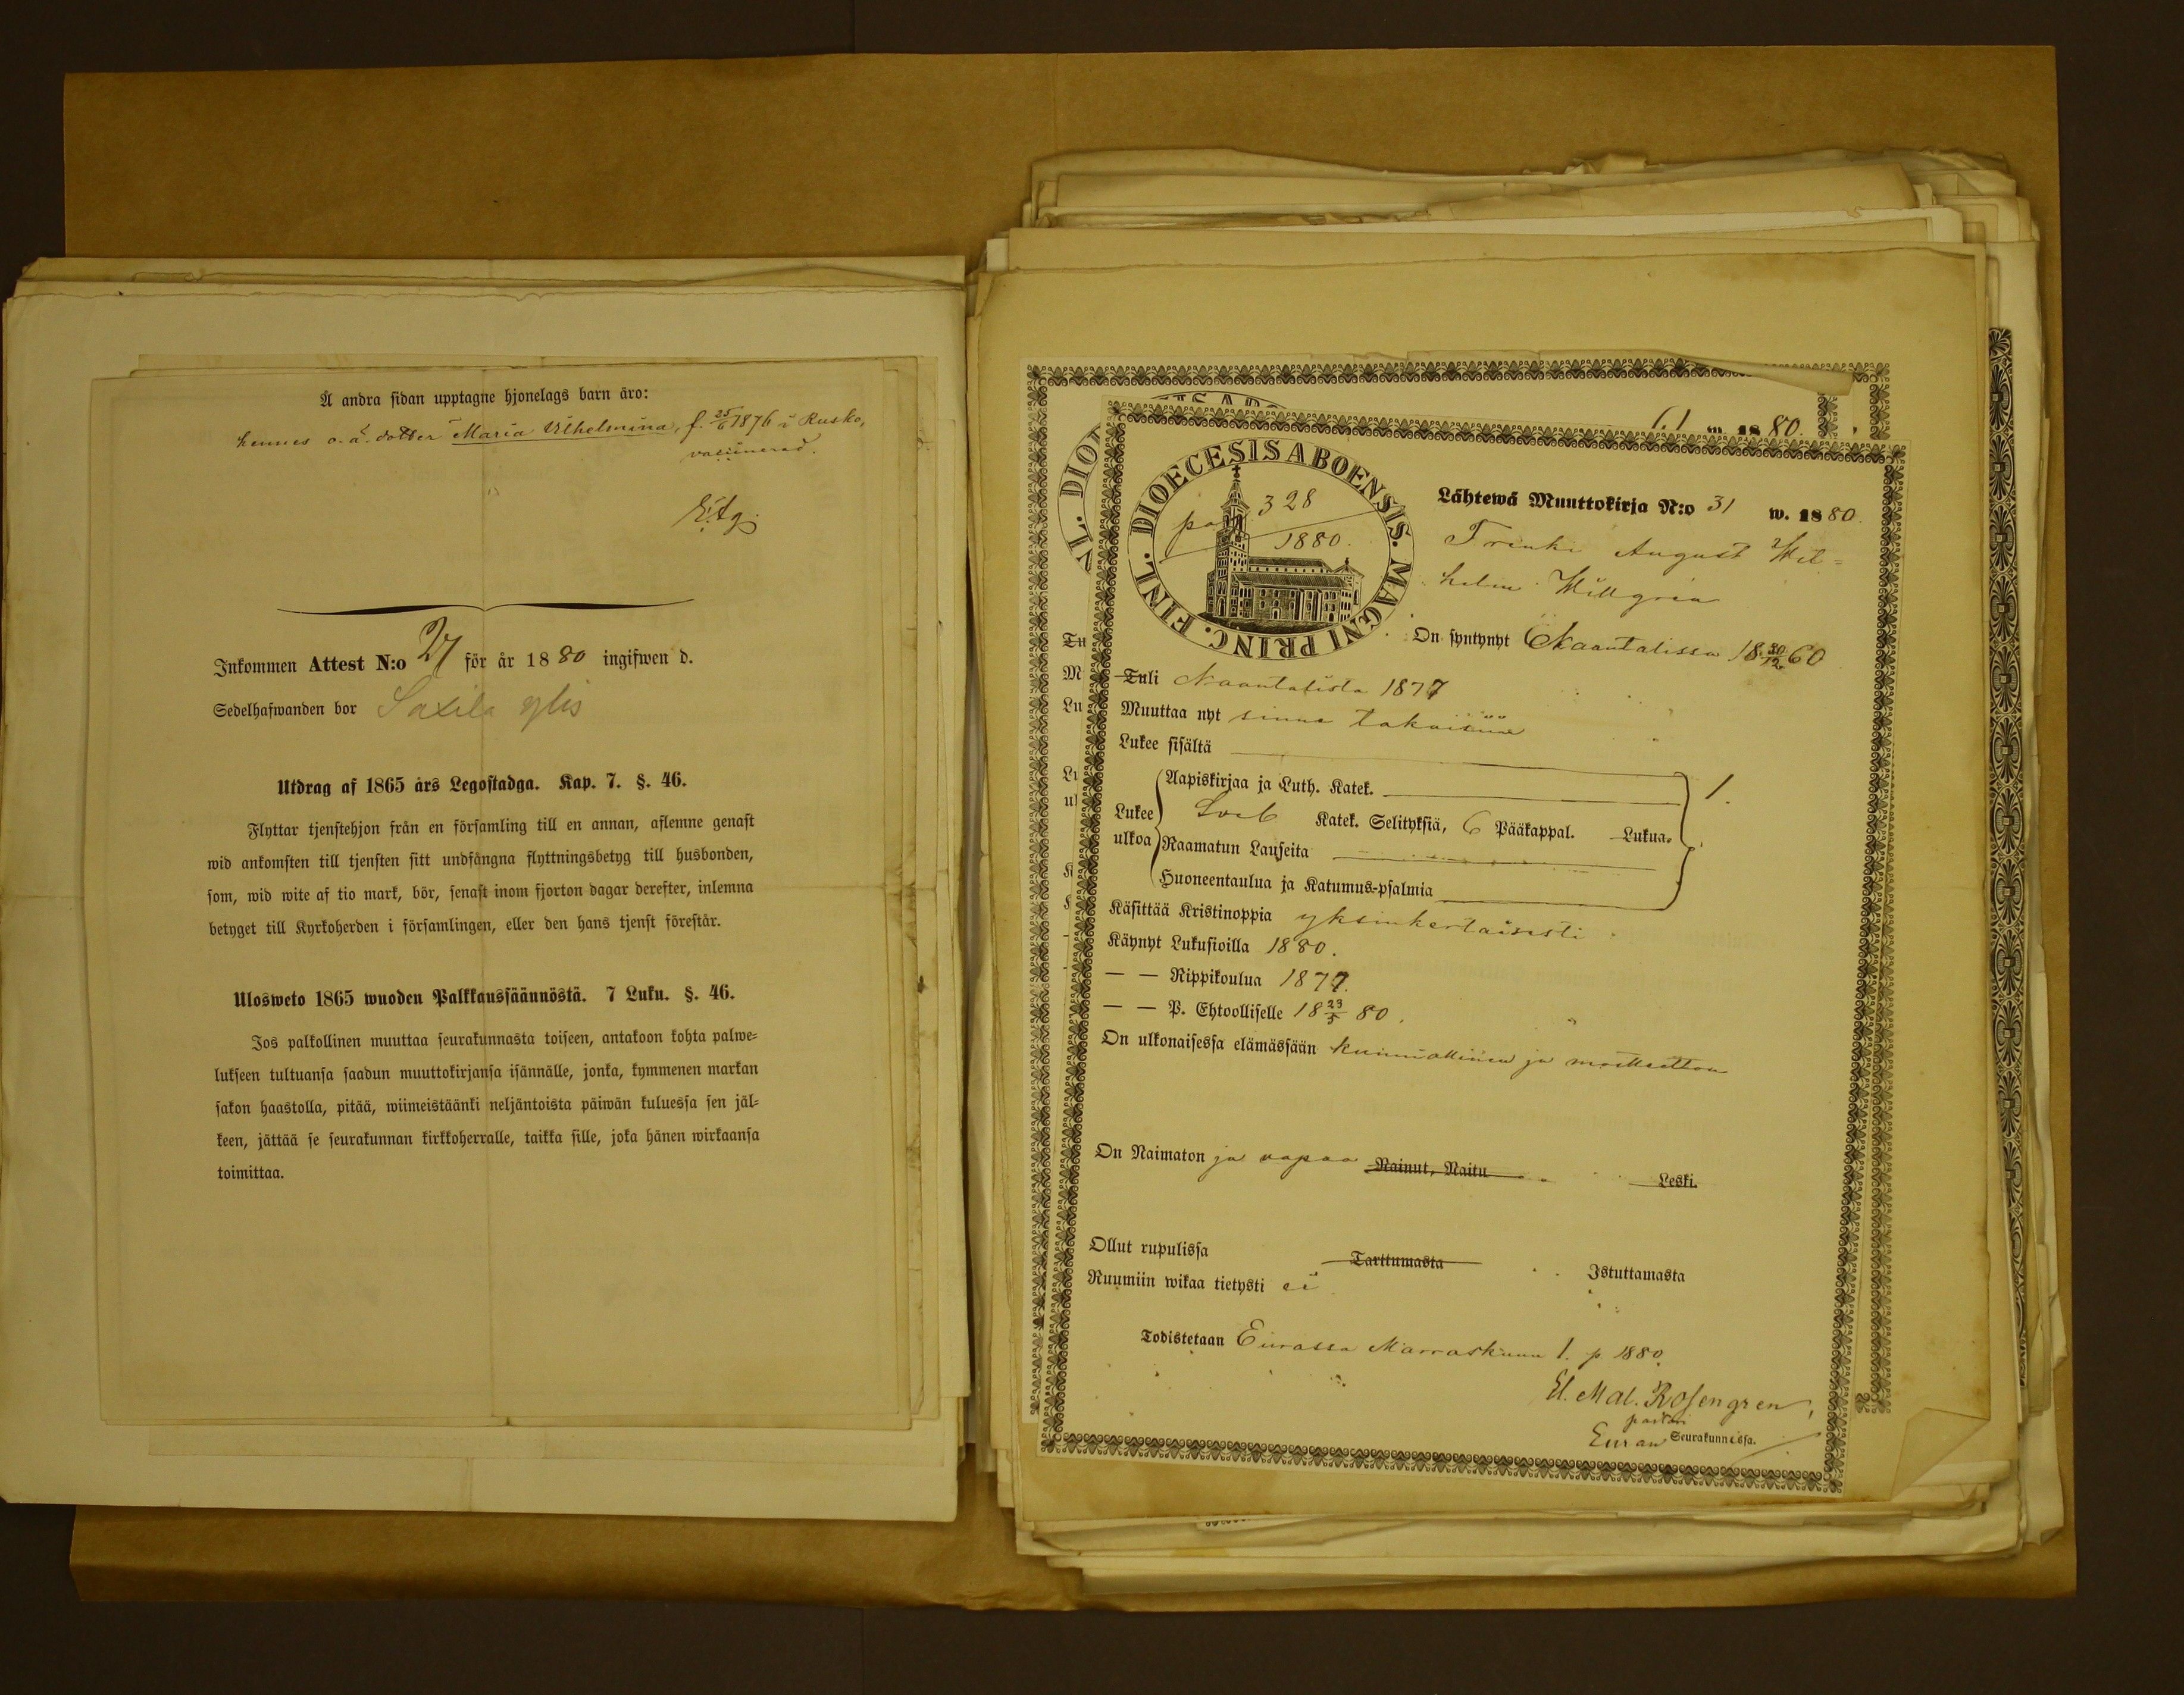 Å andra sidan upptagne hjonelags barn äro:
hennes o. ä. dotter Maria Vilhelmina, f. 25/6 1876 i Rusko,
vaccinerad.
Inkommen Attest N:o 27 för år 1880 ingifwen d.
Sedelhafwanden bor Saxila ylis
Utdrag af 1865 års Legostadga. Kap. 7. §. 46.
Flyttar tjenstehjon från en församling till en annan, aflemne genast
wid ankomsten till tjensten sitt undfångna flyttningsbetyg till husbonden,
som, wid wite af tio mark, bör, senast inom fjorton dagar derefter, inlemna
betyget till Kyrkoherden i församlingen, eller den hans tjenst förestår.
Ulosweto 1865 wuoden Palkkaussäännöstä. 7 Luku. §. 46.
Jos palkollinen muuttaa seurakunnasta toiseen, antakoon kohta palwe=
lukseen tultuansa saadun muuttokirjansa isännälle, jonka, kymmenen markan
sakon haastolla, pitää, wiimeistäänki neljäntoista päiwän kuluessa sen jäl=
keen, jättää se seurakunnan kirkkoherralle, taikka sille, joka hänen wirkaansa
toimittaa.
61 w. 1880.
DIOECESIS ABOENSIS. MAGNI PRINC. FINL.
pag. 328
1880.
Lähtewä Muuttokirja N:o 31 w. 1880.
Trenki August Wil=
helm Willgren
On syntynyt Naantalissa 18 30/12 60
Tuli Naantalista 1877
Muuttaa nyt sinne takaisin
Lukee sisältä
Aapiskirjaa ja Luth. Katek.
1.
Lukee
ulkoa
Katek. Selityksiä, 6 Pääkappal. Lukua.
Raamatun Lauseita
Huoneentaulua ja Katumus-psalmia
Käsittää Kristinoppia yksinkertaisesti
Käynyt Lukusioilla 1880.
— — Rippikoulua 1877.
— — P. Ehtoolliselle 18 23/5 80.
On ulkonaisessa elämässään kunniallinen ja moitteeton
On Naimaton ja vapaa Nainut, Naitu Leski.
Ollut rupulissa Tarttumasta Istuttamasta
Ruumiin wikaa tietysti ei
Todistetaan Eurassa Marraskuun 1. p 1880.
El. Mal. Rosengren,
pastori
Euran Seurakunnassa.